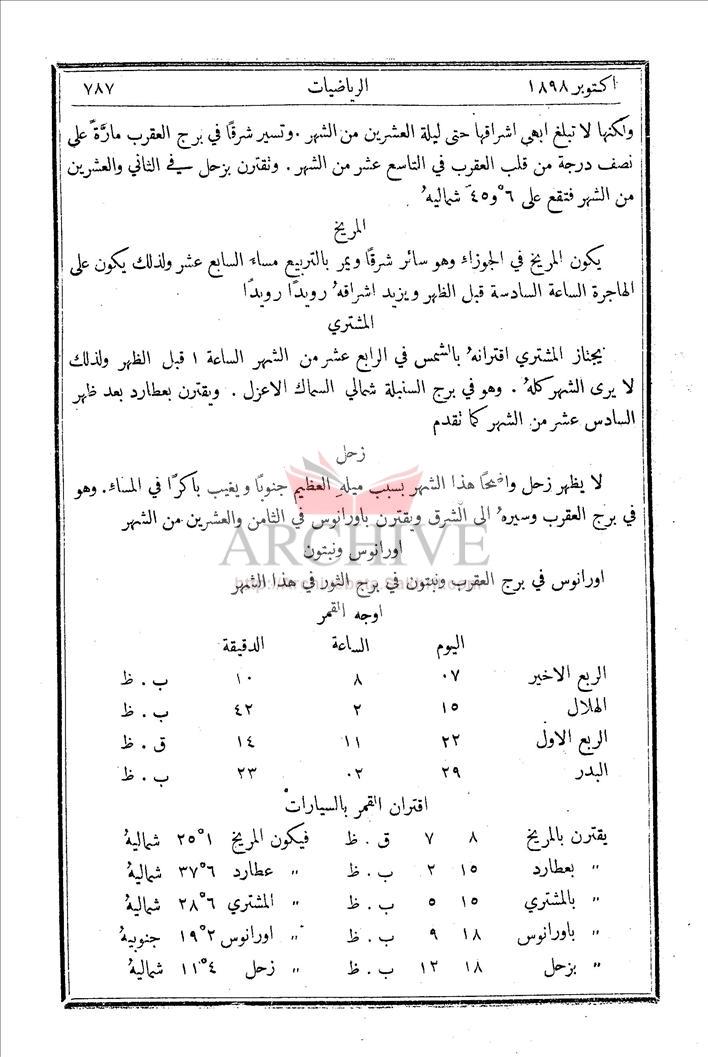 اكتوبر ١٨٩٨ الرياضيات ٧٨٧
ولكنها لا تبلغ ابهى اشراقها حتى ليلة العشرين من الشهر . وتسير شرقًا في برج العقرب مارَّةً على
نصف درجة من قلب العقرب في التاسع عشر من الشهر . وتقترن بزحل في الثاني والعشرين
من الشهر فتقع على ٦° و٤٥َ شماليهُ
المريخ
يكون المريخ في الجوزاء وهو سائر شرقًا ويمر بالتربيع مساء السابع عشر ولذلك يكون على
الهاجرة الساعة السادسة قبل الظهر ويزيد اشراقهُ رويدًا رويدًا
المشتري
يجتاز المشتري اقترانهُ بالشمس في الرابع عشر من الشهر الساعة ١ قبل الظهر ولذلك
لا يرى الشهر كلهُ . وهو في برج السنبلة شمالي السماك الاعزل . ويقترن بعطارد بعد ظهر
السادس عشر من الشهر كما تقدم
زحل
لا يظهر زحل واضحًا هذا الشهر بسبب ميلهِ العظيم جنوبًا ويغيب باكرًا في المساء . وهو
في برج العقرب وسيرهُ الى الشرق ويقترن باورانوس في الثامن والعشرين من الشهر
ARCHIVE
اورانوس ونبتون
اورانوس في برج العقرب ونبتون في برج الثور في هذا الشهر
اوجه القمر
اليوم الساعة الدقيقة
الربع الاخير ٠٧ ٨ ١٠ ب . ظ
الهلال ١٥ ٢ ٤٢ ب . ظ
الربع الاول ٢٢ ١١ ١٤ ق . ظ
البدر ٢٩ ٠٢ ٢٣ ب . ظ
اقتران القمر بالسيارات
يقترن بالمريخ ٨ ٧ ق . ظ فيكون المريخ ١° ٢٥ شماليهُ
" بعطارد ١٥ ٢ ب . ظ " عطارد ٦° ٣٧ شماليهُ
" بالمشتري ١٥ ٥ ب . ظ " المشتري ٦° ٢٨ شماليهُ
" باورانوس ١٨ ٩ ب . ظ " اورانوس ٢° ١٩ جنوبيهُ
" بزحل ١٨ ١٢ ب . ظ " زحل ٤° ١١ شماليهُ